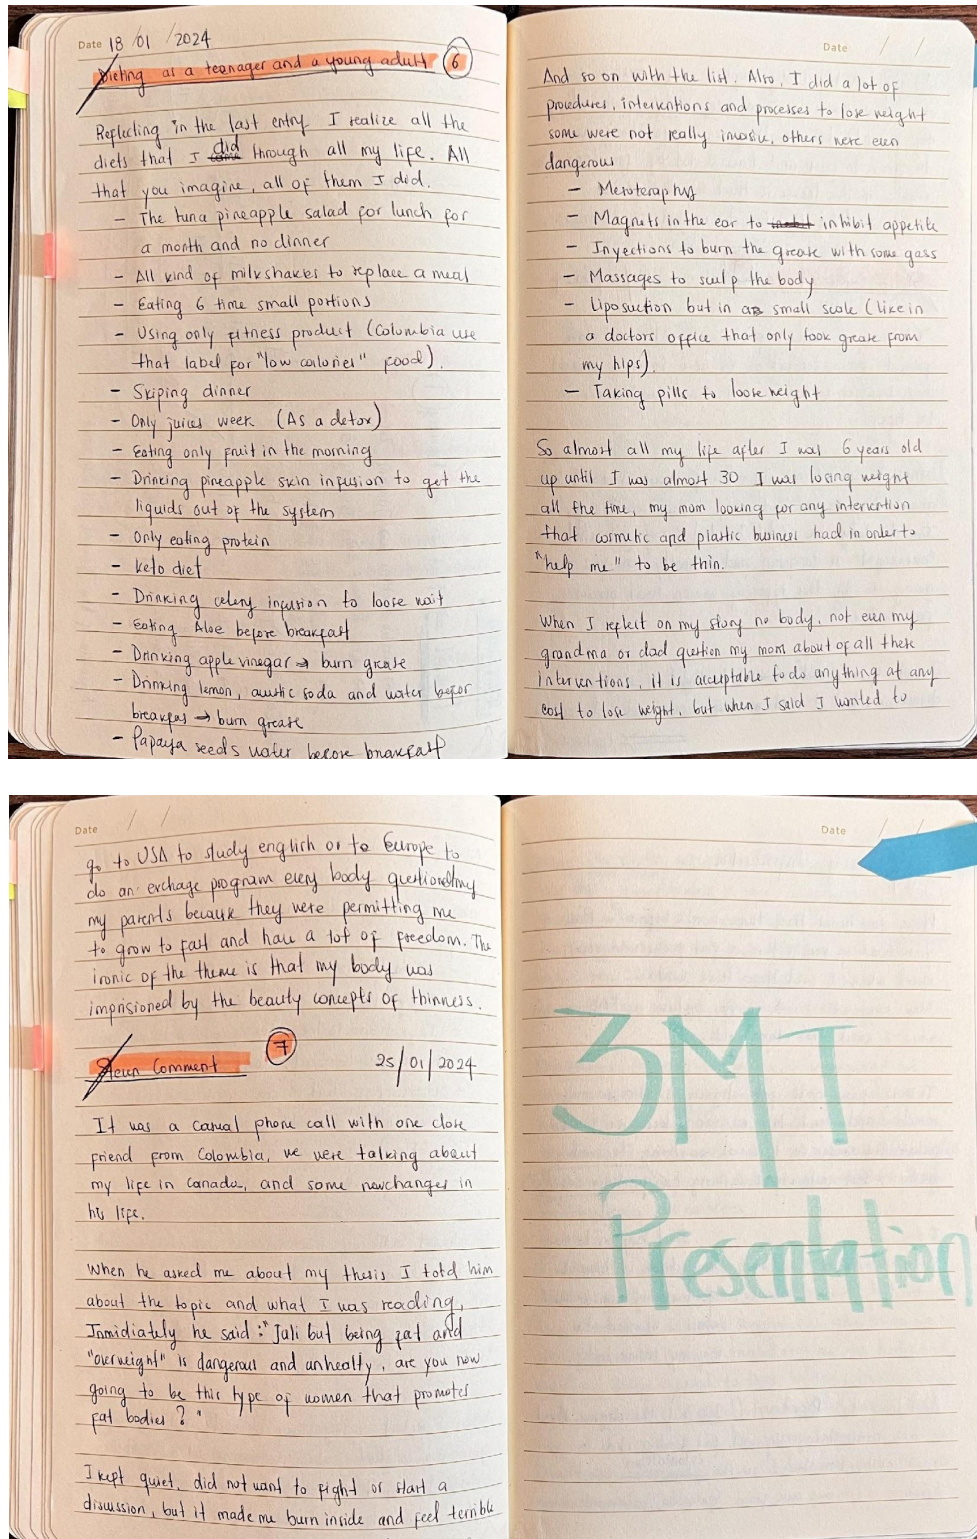 Date 18 /01 /2024
Dieting as a teenager and a young adult 6
Reflecting in the last entry I realize all the
diets that I did through all my life. All
that you imagine, all of them I did.
- The tuna pineapple salad for lunch for
a month and no dinner
- All kind of milkshakes to replace a meal
- Eating 6 time small portions
- Using only fitness product (Colombia use
that label for "low calories" food).
- Skiping dinner
- Only juices week (As a detox)
- Eating only fruit in the morning
- Drinking pineapple skin infusion to get the
liquids out of the system
- Only eating protein
- Keto diet
- Drinking celery infusion to loose wait
- Eating Aloe before breakfast
- Drinking apple vinegar → burn grease
- Drinking lemon, caustic soda and water befor
breakfas → burn grease
- Papaya seeds water before breakfast
Date / /
And so on with the list. Also, I did a lot of
procedures, interventions and processes to lose weight
some were not really invasive, others were even
dangerous
- Mesoteraphy
- Magnets in the ear to inhibit appetite
- Inyections to burn the grease with some gass
- Massages to sculp the body
- Liposuction but in a small scale (like in
a doctors office that only took grease from
my hips).
- Taking pills to loose weight
So almost all my life after I was 6 years old
up until I was almost 30 I was losing weight
all the time, my mom looking for any intervention
that cosmetic and plastic business had in order to
"help me" to be thin.
When I reflect on my story no body, not even my
grandma or dad question my mom about of all these
interventions, it is acceptable to do anything at any
cost to lose weight, but when I said I wanted to
Date / /
go to USA to study english or to Europe to
do an exchage program every body questioned my
my parents because they were permitting me
to grow to fast and have a lot of freedom. The
ironic of the theme is that my body was
imprisioned by the beauty concepts of thinness.
7
Comment 25/01/2024
It was a casual phone call with one close
friend from Colombia, we were talking about
my life in Canada, and some new changes in
his life.
When he asked me about my thesis I told him
about the topic and what I was reading,
Inmidiately he said: "Juli but being fat and
"overweight" is dangerous and unhealty, are you now
going to be this type of women that promotes
fat bodies?"
I kept quiet, did not want to fight or start a
discussion, but it made me burn inside and feel terrible
Date / /
3MT
Presentation